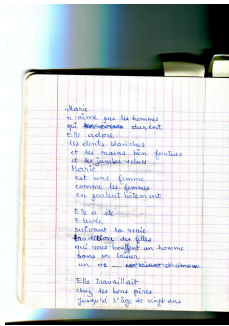 Marie
n'aime pas les hommes
qui durent
Elle adore
les dents blanches
et des mains bien foutues
et les jambes velues
Marie
est une femme
comme les femmes
en parlent bêtement
Elle a été
Elevée
suivant la vraie
tradition des filles
qui vous bouffent un homme
sans en laisser
un os
Elle travaillait
chez les bons pères
jusqu'à l'âge de vingt ans